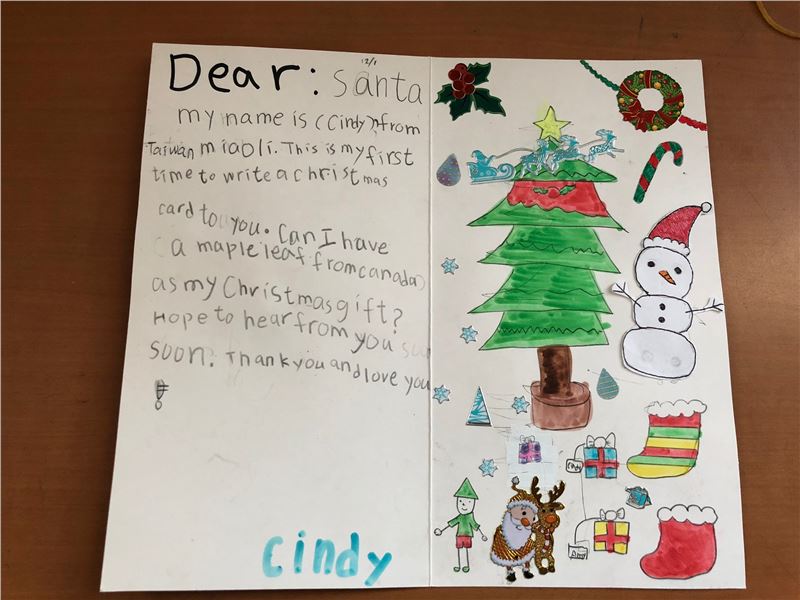 12/1
Dear: Santa
my name is (Cindy), from
Taiwan miaoli. This is my first
time to write a christmas
card to you. Can I have
a maple leaf from canada)
as my Christmas gift?
Hope to hear from you
soon. Thank you and love you
!
Cindy
Cindy
Amy